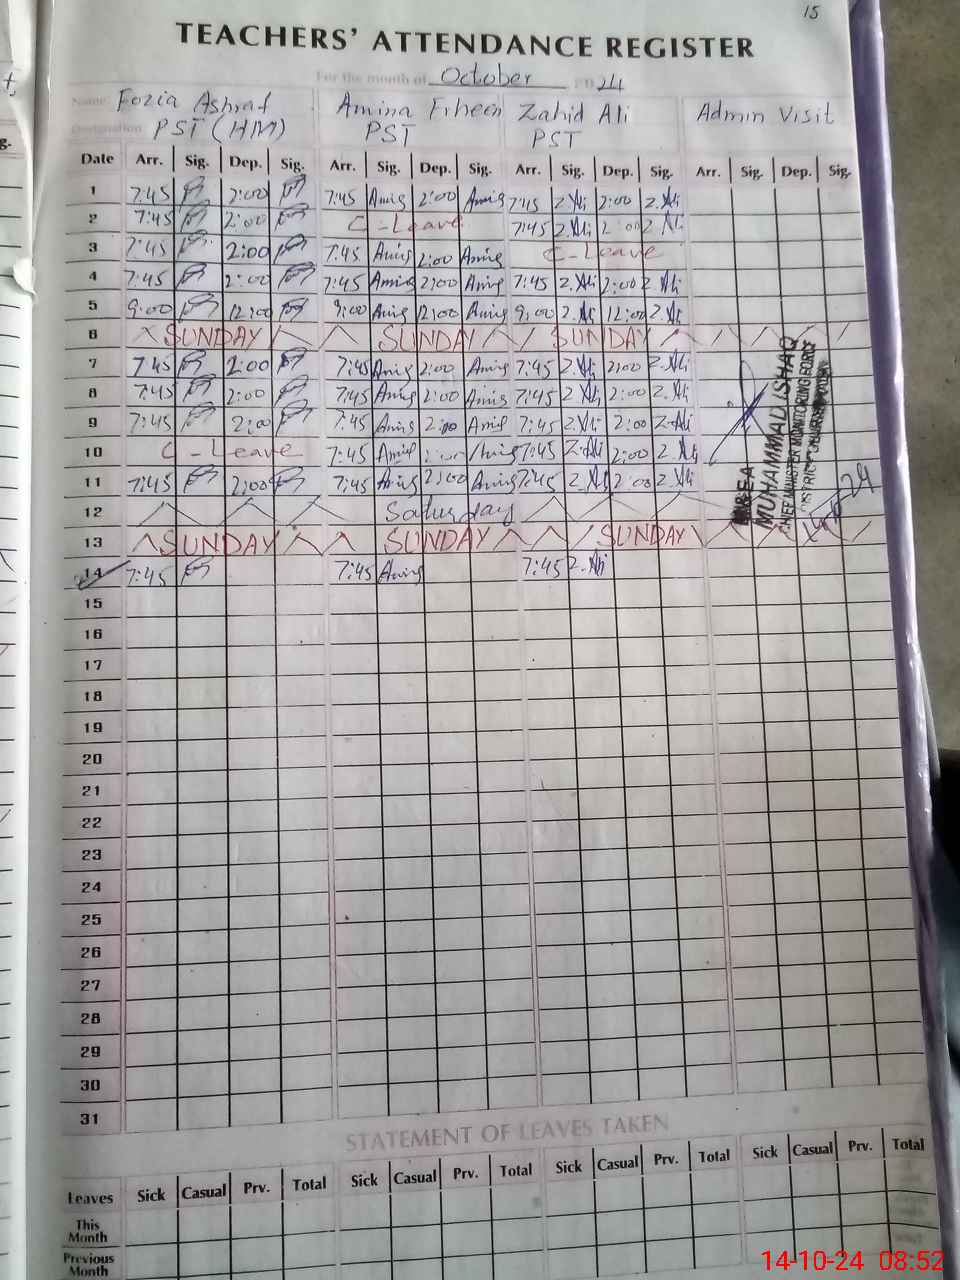 15
TEACHERS' ATTENDANCE REGISTER
For the month of October 24
Name Fozia Ashraf Amina Zahid Ali Admin Visit
Designation PST (HM) PST PST
Date Arr. Sig. Dep. Sig. Arr. Sig. Dep. Sig. Arr. Sig. Dep. Sig. Arr. Sig. Dep. Sig.
1 7:45 2:00 7:45 2:00 7:45 Z.Ali 2:00 Z.Ali
2 7:45 2:00 C-Leave 7:45 Z.Ali 2:00 Z.Ali
3 7:45 2:00 7:45 2:00 C-Leave
4 7:45 2:00 7:45 2:00 7:45 Z.Ali 2:00 Z.Ali
5 9:00 12:00 9:00 12:00 9:00 Z.Ali 12:00 Z.Ali
6 SUNDAY SUNDAY SUNDAY
7 7:45 2:00 7:45 2:00 7:45 Z.Ali 2:00 Z.Ali
8 7:45 2:00 7:45 2:00 7:45 Z.Ali 2:00 Z.Ali
9 7:45 2:00 7:45 2:00 7:45 Z.Ali 2:00 Z.Ali
10 C-Leave 7:45 7:45 Z.Ali 2:00 Z.Ali
11 7:45 2:00 7:45 2:00 7:45 Z.Ali 2:00 Z.Ali
12 Saturday
13 SUNDAY SUNDAY SUNDAY
14 7:45 7:45 7:45 Z.Ali
MEA
MUHAMMAD ISHAQ
CHIEF MINISTER MONITORING FORCE
DISTRICT
15
16
17
18
19
20
21
22
23
24
25
26
27
28
29
30
31
STATEMENT OF LEAVES TAKEN
Leaves Sick Casual Prv. Total Sick Casual Prv. Total Sick Casual Prv. Total Sick Casual Prv. Total
This Month
Previous Month
14-10-24 08:52